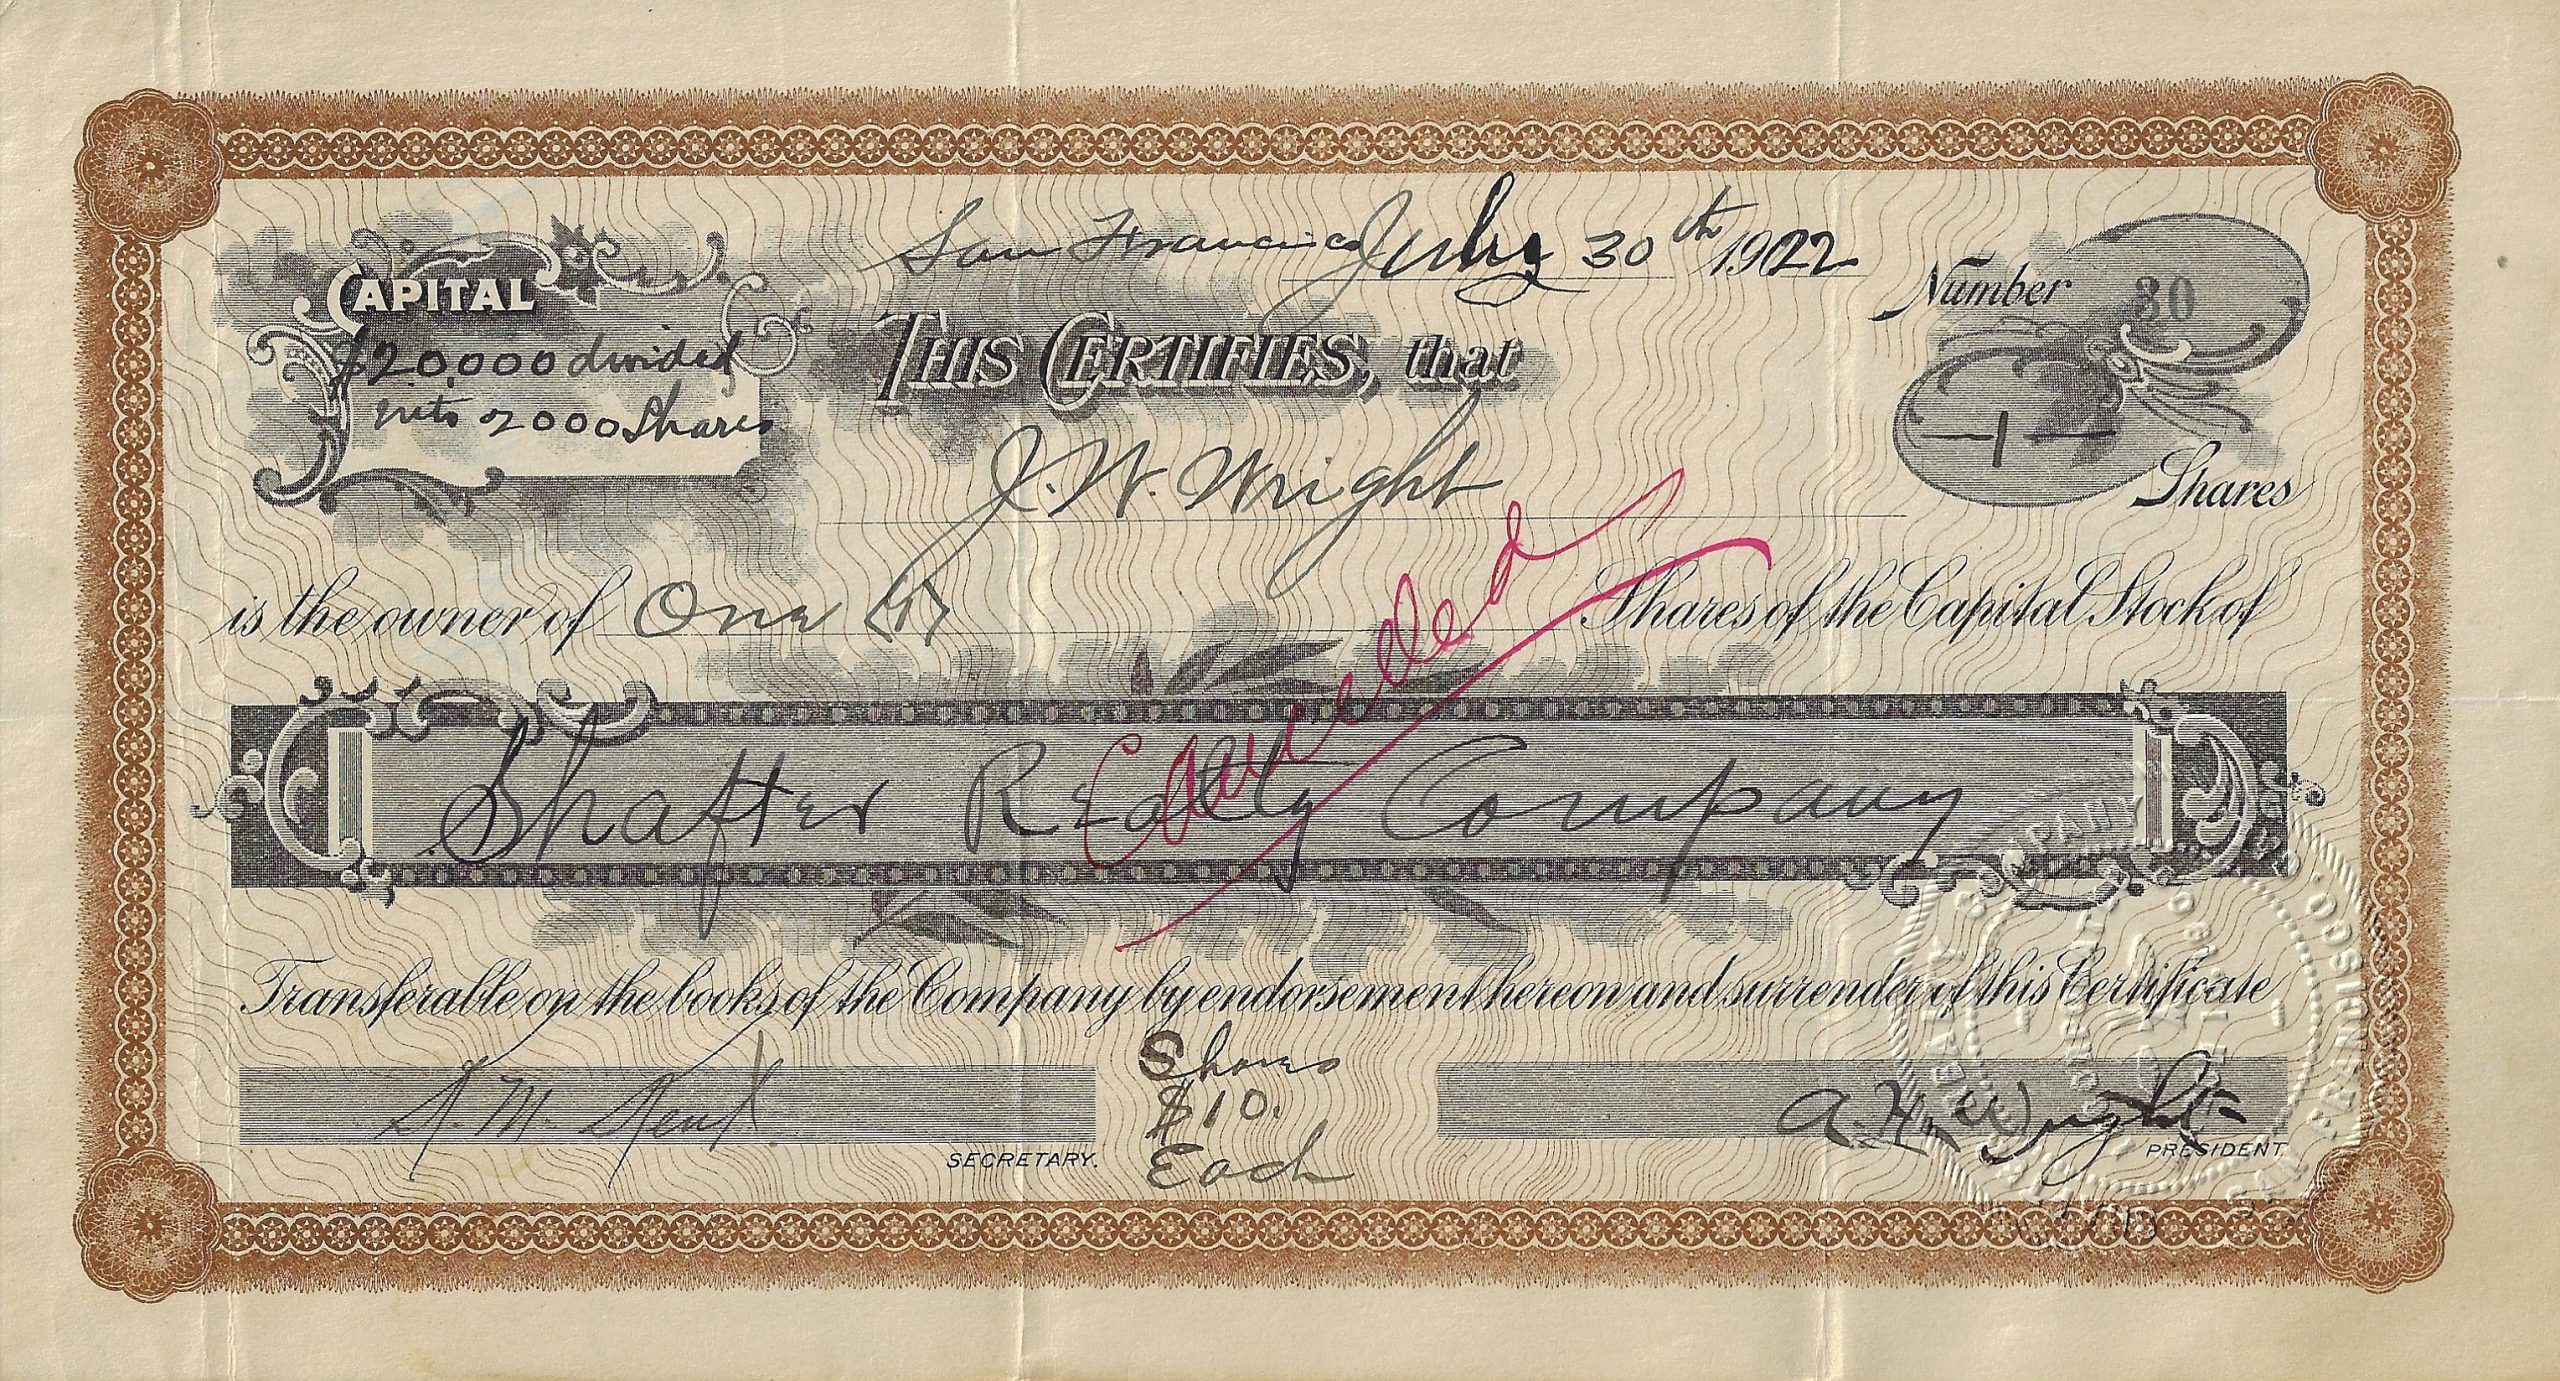 San Francisco July 30th 1922
CAPITAL
$20,000 divided
into 2000 Shares
Number
THIS CERTIFIES, that
- 1 -
Shares
J. W. Wright
is the owner of One (1) Shares of the Capital Stock of
Cancelled
Shafter Realty Company
Transferable on the books of the Company by endorsement hereon and surrender of this Certificate
Shares
$10.
Each
A. H. Wright
SECRETARY.
PRESIDENT.